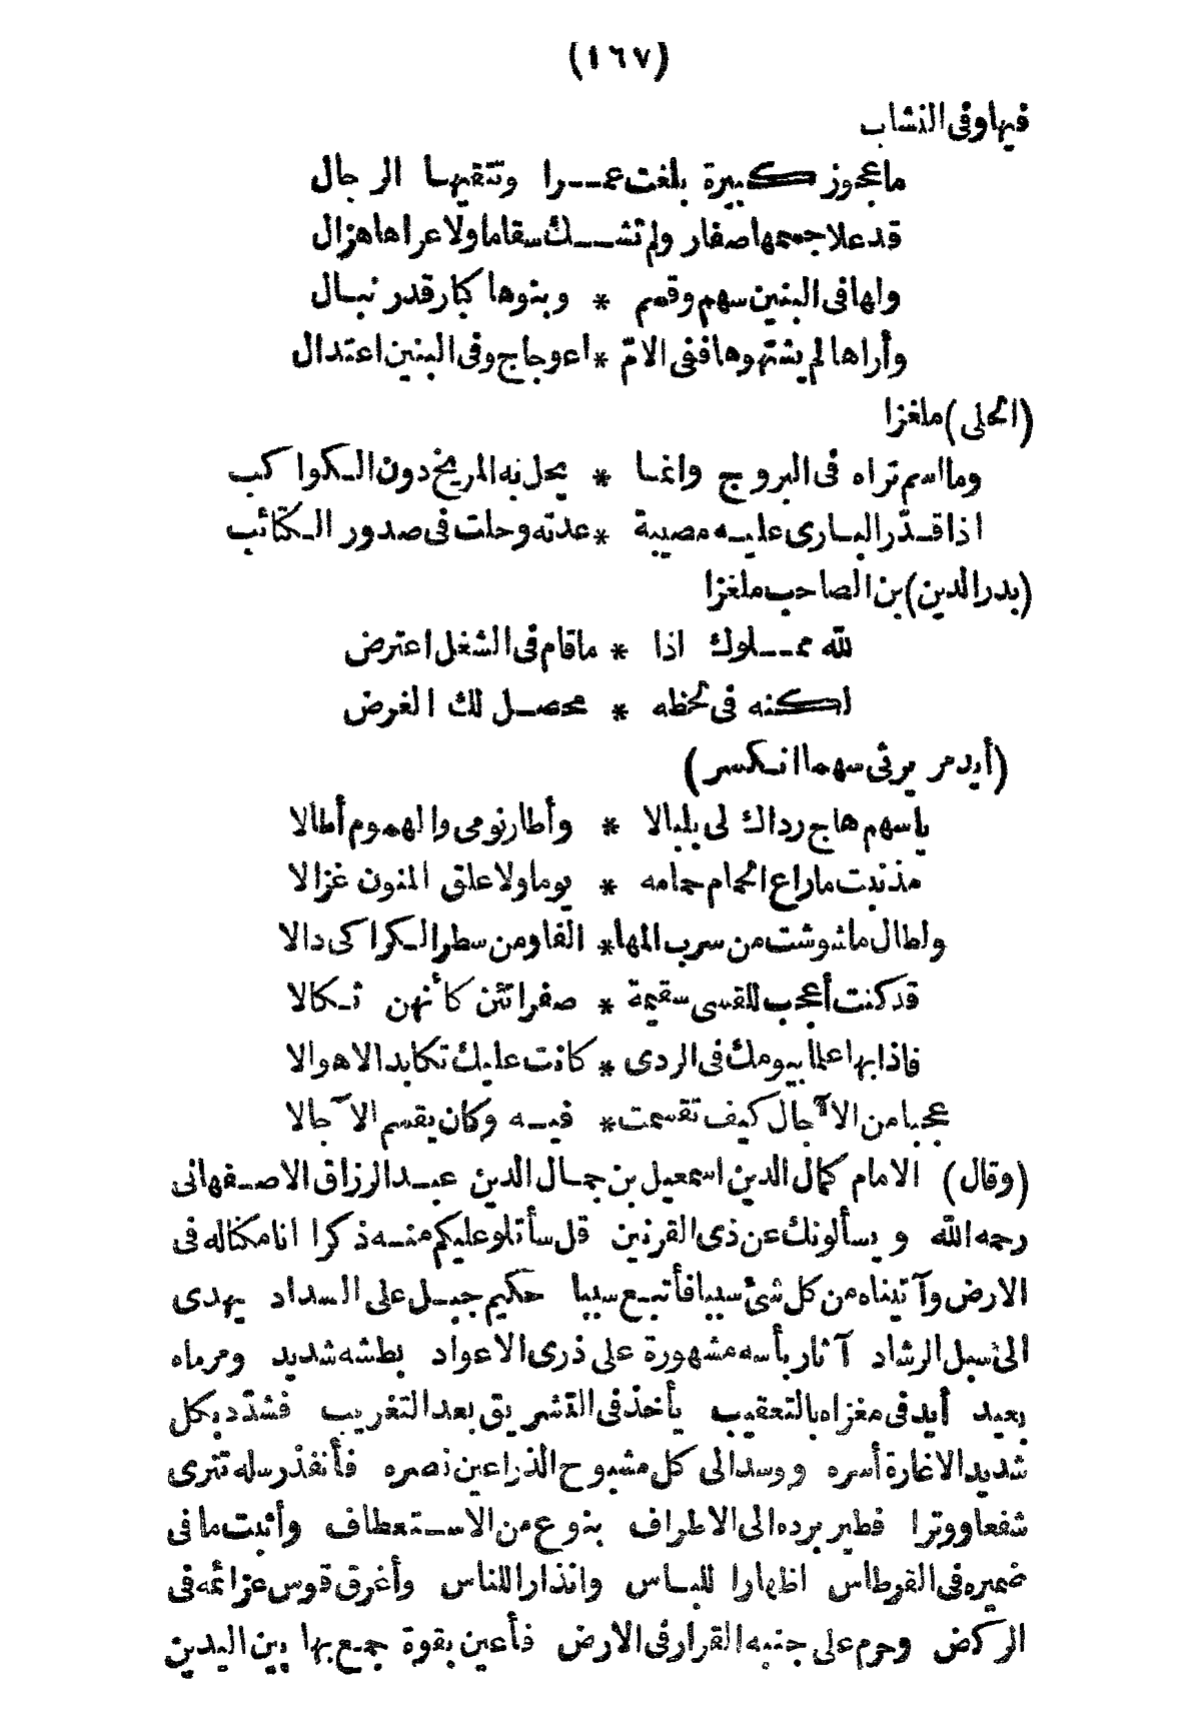 (١٦٧)
فيها وفى النشاب
ما عجوز كبيرة بلغت عمرا وتتقيها الرجال
قد علا جسمها صفار ولم تشك سقاما ولا عراها هزال
ولها فى البنين سهم وقسم * وبنوها كبار قدر نبال
وأراها لم يشتهوها ففى الامّ * اعوجاج وفى البنين اعتدال
(الحلى) ملغزا
وما اسم تراه فى البروج وانما * يحل به المريخ دون الكواكب
اذا قدّر البارى عليه مصيبة * عدته وحلت فى صدور الكتائب
(بدر الدين) بن الصاحب ملغزا
لله مملوك اذا * ما قام فى الشغل اعترض
لكنه فى لحظه * محصل لك الغرض
(أيدمر يرثى سهما انكسر)
يا سهم هاج رداك لى بلبالا * وأطار نومى والهموم أطالا
مذ نبت ما راع الحمام حمامه * يوما ولا علق المنون غزالا
ولطال ما شوشت من سرب المها * الفا ومن سطر الكراكى دالا
قد كنت أعجب للقسى سقيمة * صفرا تئن كأنهن ثكالا
فاذا بها علما بيومك فى الردى * كانت عليك تكابد الاهوالا
عجبا من الآجال كيف تقسمت * فيه وكان يقسم الآجالا
(وقال) الامام كمال الدين اسمعيل بن جمال الدين عبد الرزاق الاصفهانى
رحمه الله ويسألونك عن ذى القرنين قل سأتلو عليكم منه ذكرا انا مكنا له فى
الارض وآتيناه من كل شئ سببا فأتبع سببا حكيم جبل على السداد يهدى
الى سبل الرشاد آثار بأسه مشهورة على ذرى الاعواد بطشه شديد ومرماه
بعيد أيد فى مغزاه بالتعقيب يأخذ فى التشريق بعد التغريب فشدّد بكل
شديد الاغارة أسره ووسد الى كل مشبوح الذراعين نصره فأنفذ رسله تترى
شفعا ووترا فطير برده الى الاطراف بنوع من الاستعطاف وأثبت ما فى
ضميره فى القرطاس اظهارا للباس وانذارا للناس وأغرق قوس عزائمه فى
الركض وحرم على جنبه القرار فى الارض فأعين بقوة جمع بها بين اليدين